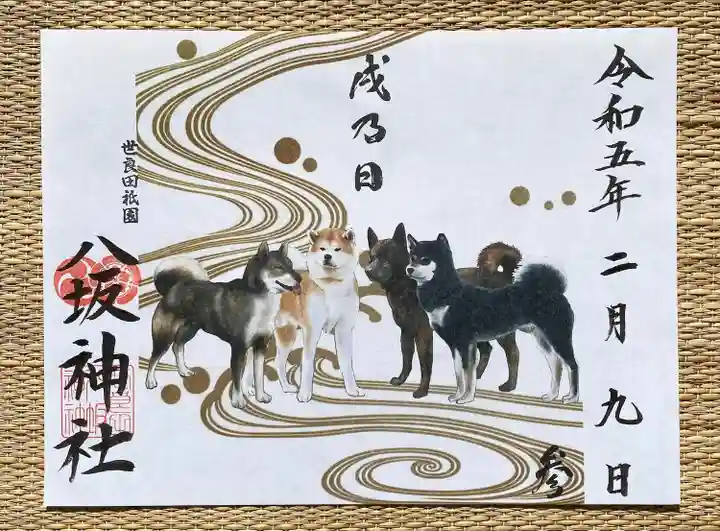 令和五年 二月 九日
戌乃日
参
世良田祇園
八坂神社